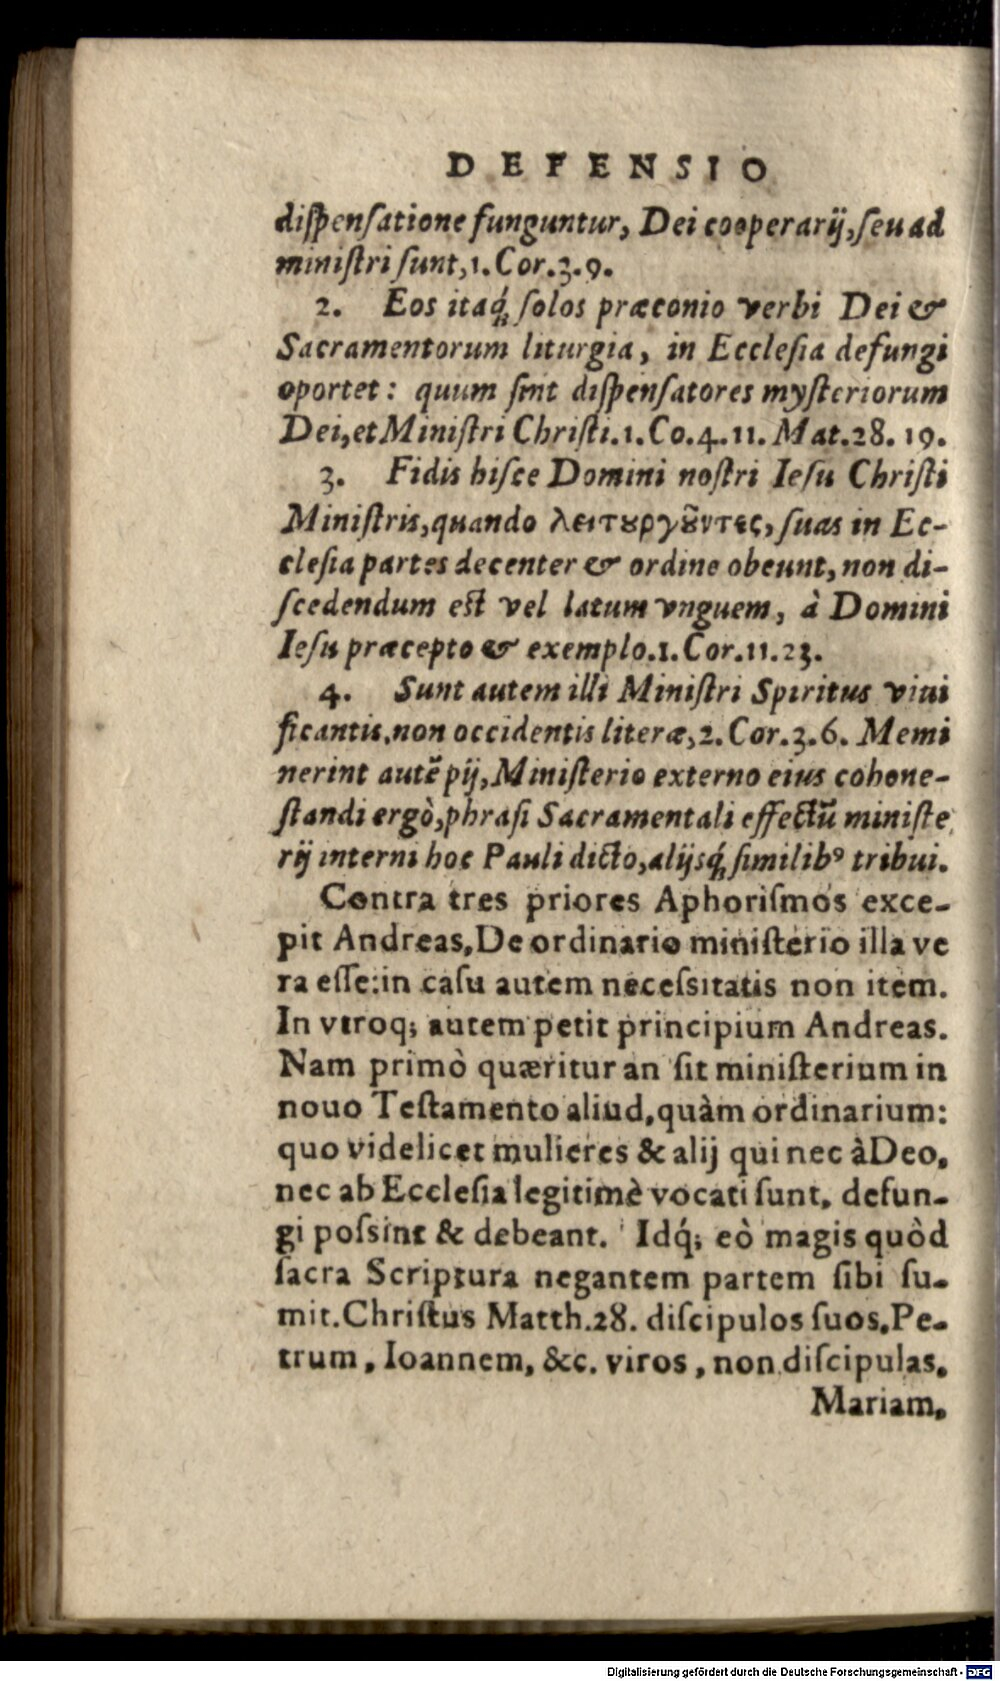 DEFENSIO
diſpenſatione funguntur, Dei cooperarij, ſeu ad
miniſtri ſunt, 1. Cor. 3. 9.
2. Eos itaq́ꝫ ſolos præconio verbi Dei &
Sacramentorum liturgia, in Eccleſia defungi
oportet: quum ſint diſpenſatores myſteriorum
Dei, et Miniſtri Chriſti. 1. Co. 4. 11. Mat. 28. 19.
3. Fidis hiſce Domini noſtri Ieſu Chriſti
Miniſtris, quando λειτȣργȣ̃ντες, ſuas in Ec-
cleſia partes decenter & ordine obeunt, non di-
ſcedendum eſt vel latum vnguem, à Domini
Ieſu præcepto & exemplo. 1. Cor. 11. 23.
4. Sunt autem illi Miniſtri Spiritus viui
ficantis, non occidentis literæ, 2. Cor. 3. 6. Memi
nerint autẽ pij, Miniſterio externo eius cohone-
ſtandi ergò, phraſi Sacramentali effectũ miniſte
rij interni hoc Pauli dicto, alijsq́ꝫ ſimilibꝰ tribui.
Contra tres priores Aphoriſmos exce-
pit Andreas, De ordinario miniſterio illa ve
ra eſſe: in caſu autem neceſsitatis non item.
In vtroqꝫ autem petit principium Andreas.
Nam primò quæritur an ſit miniſterium in
nouo Teſtamento aliud, quàm ordinarium:
quo videlicet mulieres & alij qui nec à Deo,
nec ab Eccleſia legitimè vocati ſunt, defun-
gi poſsint & debeant. Idq́ꝫ eò magis quòd
ſacra Scriptura negantem partem ſibi ſu-
mit. Chriſtus Matth. 28. diſcipulos ſuos, Pe-
trum, Ioannem, &c. viros, non diſcipulas,
Mariam,
Digitalisierung gefördert durch die Deutsche Forschungsgemeinschaft - DFG